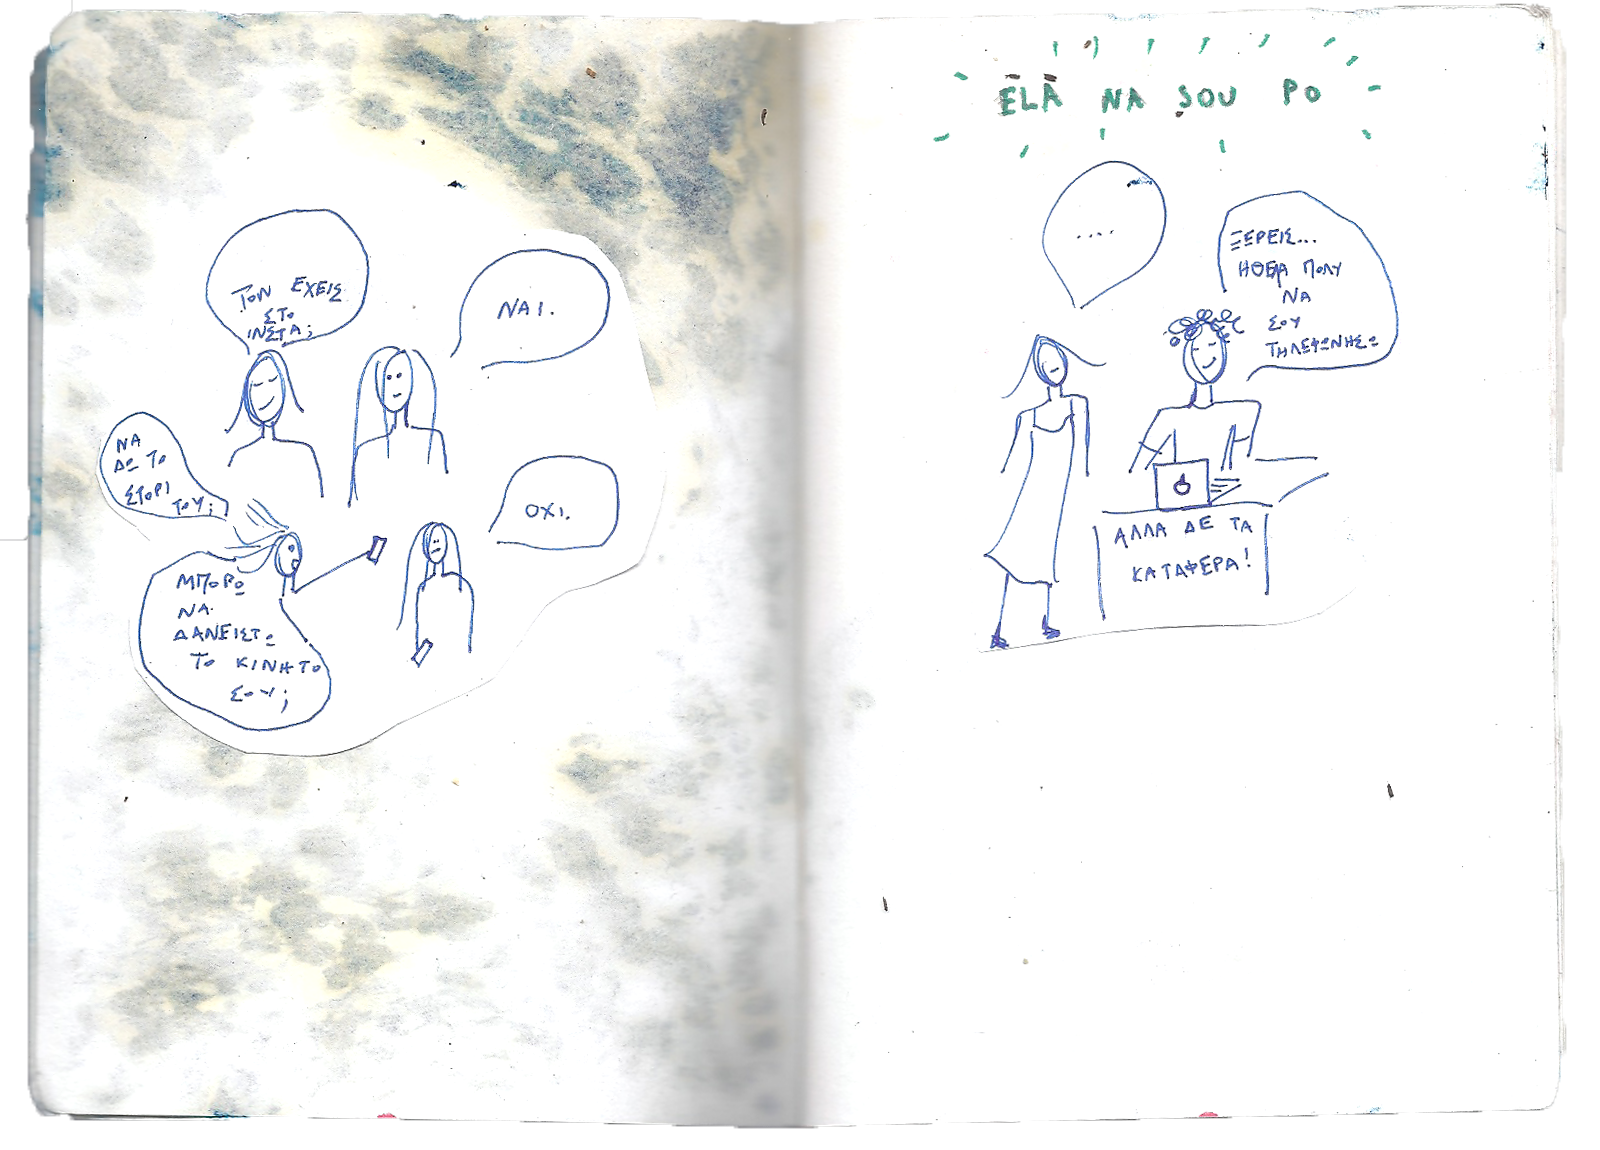 ΤΟΝ ΕΧΕΙΣ
ΣΤΟ
ΙΝΣΤΑ;
ΝΑΙ.
ΝΑ
ΔΩ ΤΟ
ΣΤΟΡΙ
ΤΟΥ;
ΜΠΟΡΩ
ΝΑ
ΔΑΝΕΙΣΤΩ
ΤΟ ΚΙΝΗΤΟ
ΣΟΥ;
ΟΧΙ.
ELA NA SOU PO
....
ΞΕΡΕΙΣ...
ΗΘΕΛΑ ΠΟΛΥ
ΝΑ
ΣΟΥ
ΤΗΛΕΦΩΝΗΣΩ
ΑΛΛΑ ΔΕ ΤΑ
ΚΑΤΑΦΕΡΑ!